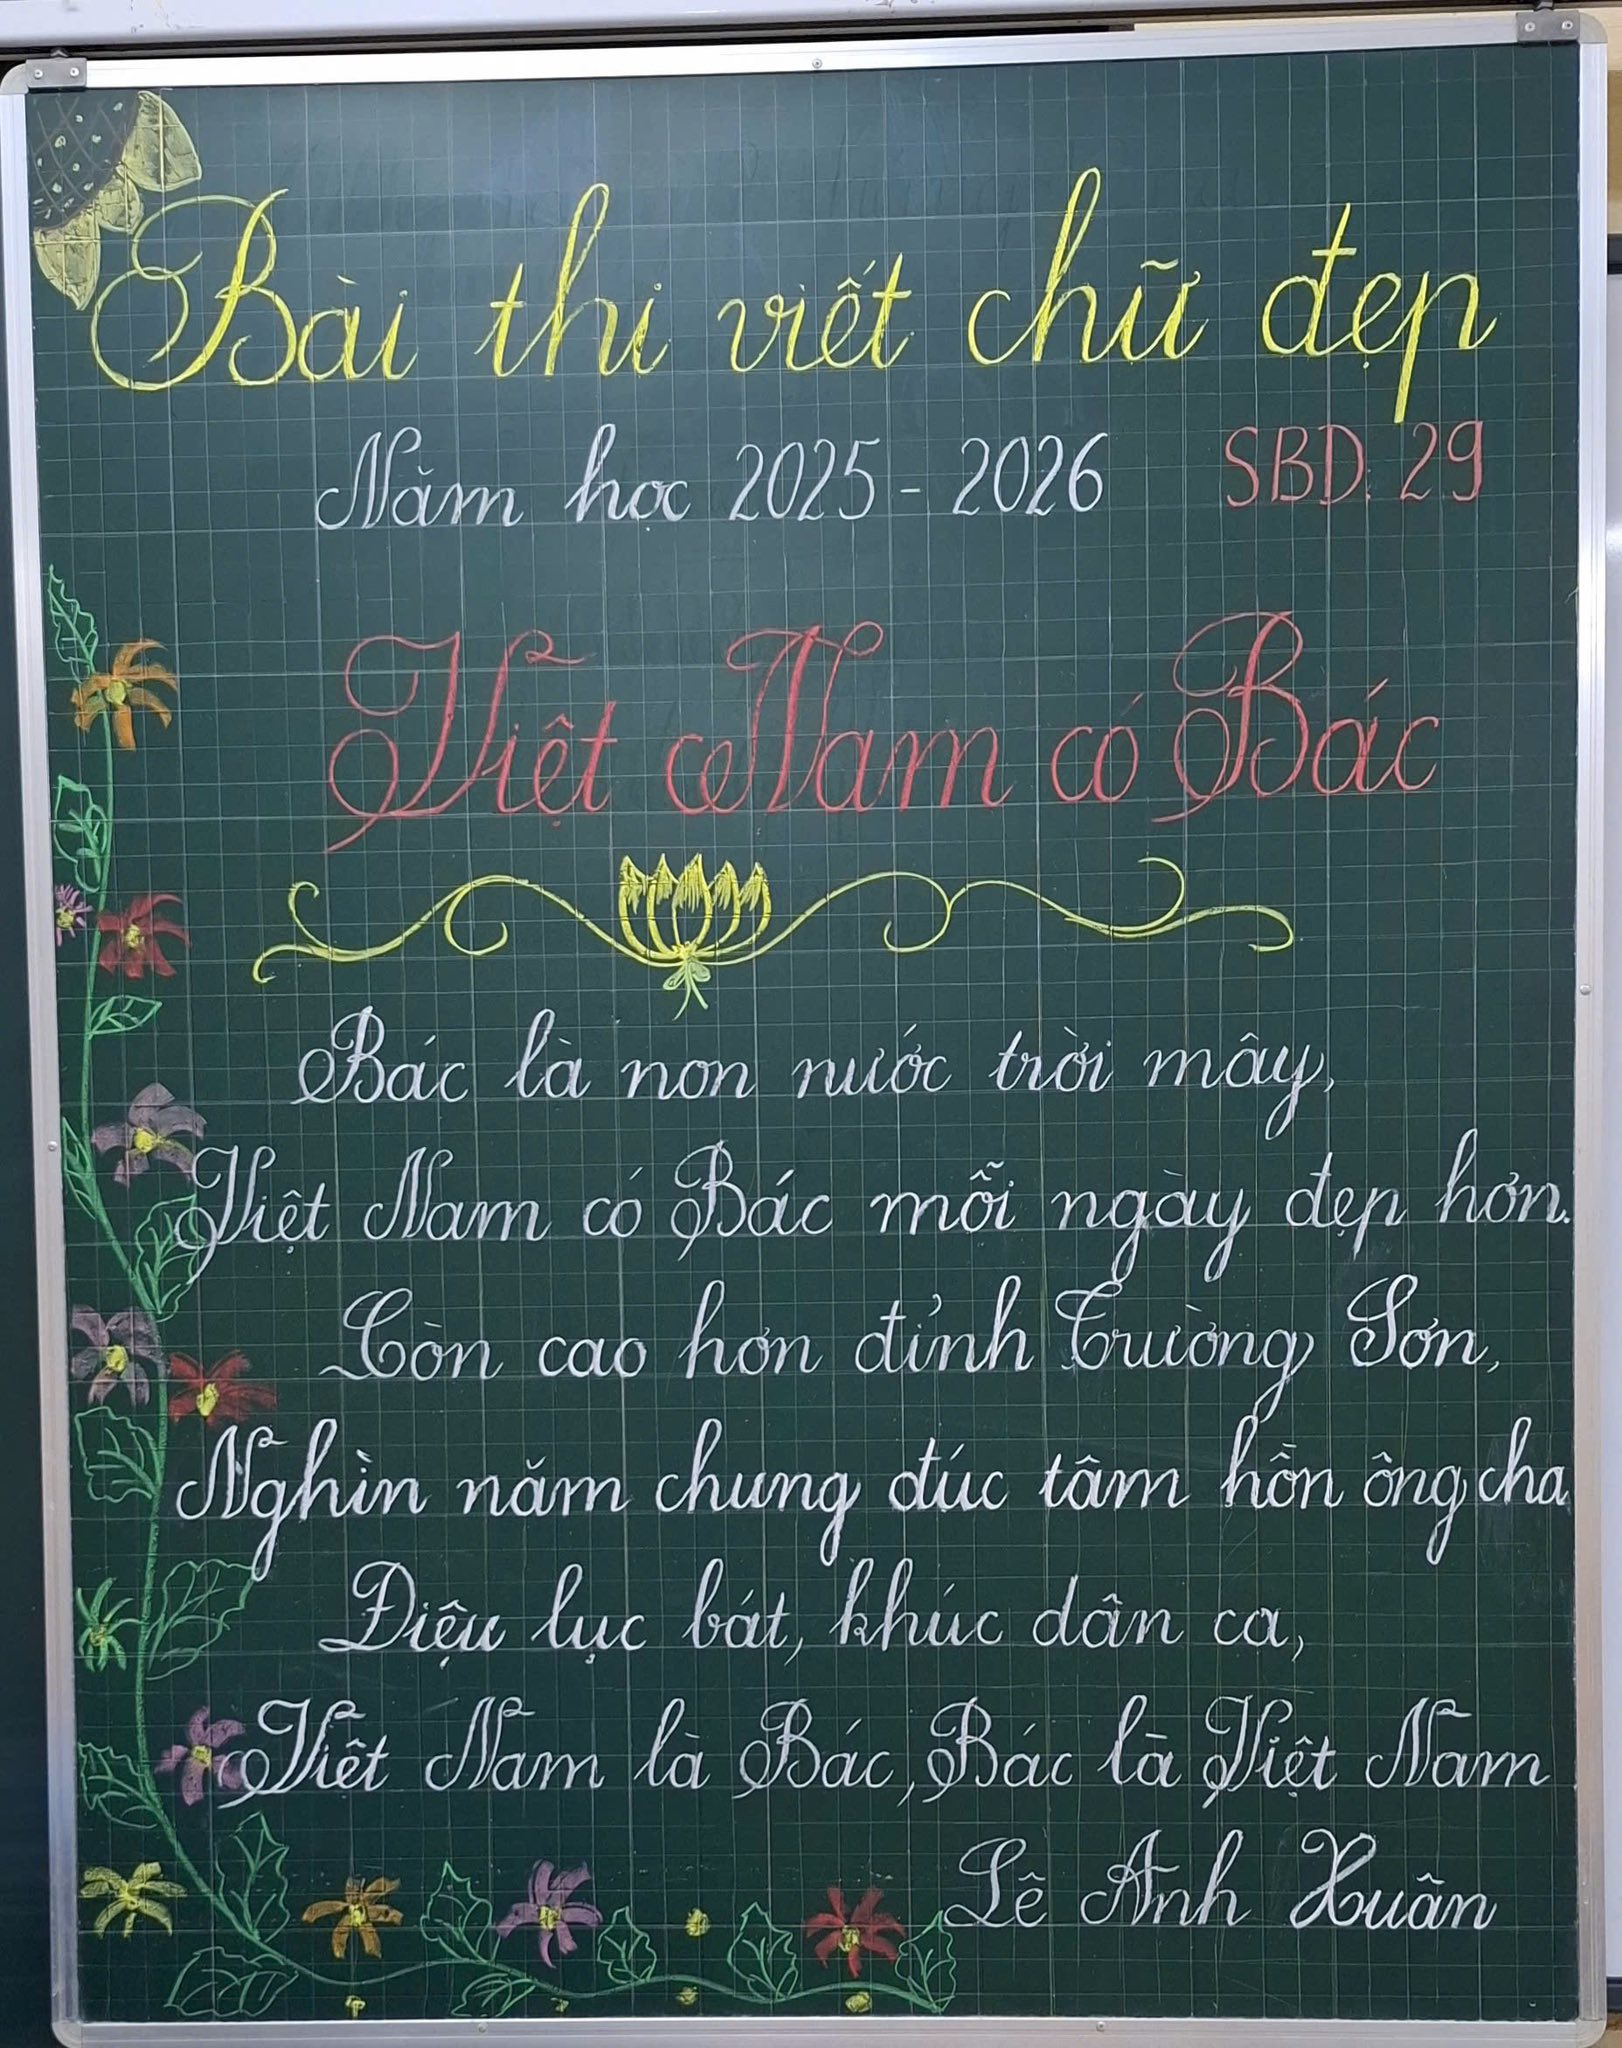 Bài thi viết chữ đẹp
Năm học 2025 - 2026 SBD: 29
Việt Nam có Bác
Bác là non nước trời mây,
Việt Nam có Bác mỗi ngày đẹp hơn.
Còn cao hơn đỉnh Trường Sơn,
Nghìn năm chung đúc tâm hồn ông cha
Điệu lục bát, khúc dân ca,
Việt Nam là Bác, Bác là Việt Nam
Lê Anh Xuân